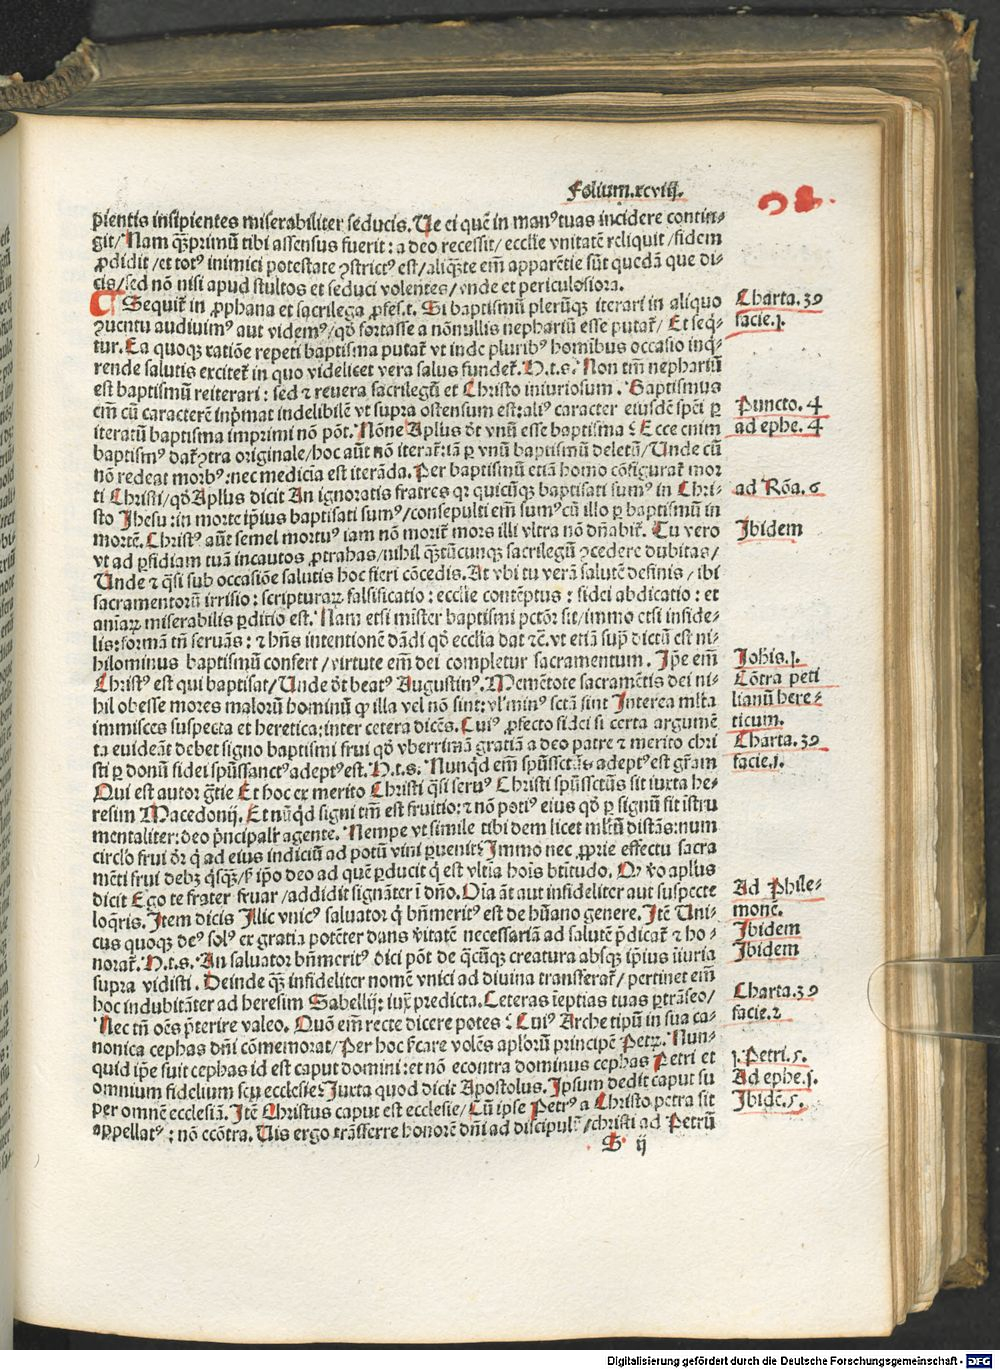 Folium.xcviij.
98.
pientis insipientes miserabiliter seducis. Ue ei quē in manꝰ tuas incidere contin⸗
git/ Nam qꝫprimū tibi assensus fuerit: a deo recessit/ ecclīe vnitatē reliquit /fidem
ꝓdidit /et totꝰ inimici potestate ꝯstrictꝰ est/aliqꝫte em̄ apparētie sūt quedā que di⸗
cis/sed nō nisi apud stultos et seduci volentes/vnde et periculosiora.
¶ Sequit᷑ in ꝓphana et sacrilega ꝓfes.t. Si baptismū plerūqꝫ iterari in aliquo
ꝯuentu audiuimꝰ aut videmꝰ/qđ fortasse a nōnullis nephariū esse putat᷑/ Et seq̄⸗
tur. Ea quoqꝫ ratiōe repeti baptisma putat᷑ vt inde pluribꝰ homībus occasio inq̄⸗
rende salutis excitet᷑ in quo videlicet vera salus fundet᷑. N.t.s. Non tm̄ nephariū
est baptismū reiterari: sed ⁊ reuera sacrilegū et Christo iniuriosum. Baptismus
em̄ cū caracterē inp̄mat indelibilē vt supra ostensum est: aliꝰ caracter eiusdē spēi ꝑ
iteratū baptisma imprimi nō pōt. Nōne Aplus dt̄ vnū esse baptisma? Ecce enim
baptismꝰ dat᷑ ꝯtra originale/hoc aūt nō iterat᷑: iā ꝑ vnū baptismū deletū/Unde cū
nō redeat morbꝰ: nec medicīa est iterāda. Per baptismū etiā homo cōfigurat᷑ mor
ti Christi/qđ Aplus dicit An ignoratis fratres qꝛ quicūqꝫ baptisati sumꝰ in Chri⸗
sto Jhesu: in morte ip̄ius baptisati sumꝰ/consepulti em̄ sumꝰ cū illo ꝑ baptismū in
mortē. Christꝰ aūt semel mortuꝰ iam nō morit᷑ mors illi vltra nō dn̄abit᷑. Tu vero
vt ad ꝑfidiam tuā incautos ꝓtrahas/nihil qꝫtūcunqꝫ sacrilegū ꝯcedere dubitas/
Unde ⁊ q̄si sub occasiōe salutis hoc fieri cōcedis. At vbi tu verā salutē definis / ibi
sacramentorū irrisio: scripturaꝝ falsificatio: ecclīe contēptus: fidei abdicatio: et
aīaꝝ miserabilis ꝑditio est. Nam etsi mīster baptismi pctōr sit/immo etsi infide⸗
lis: formā tn̄ seruās: ⁊ hn̄s intentionē dādi qđ ecclīa dat ⁊c̄. vt etiā sup̄ dictū est ni⸗
hilominus baptismū confert /virtute em̄ dei completur sacramentum. Ip̄e em̄
Christꝰ est qui baptisat/Unde dt̄ beatꝰ Augustinꝰ. Memētote sacramētis dei ni⸗
hil obesse mores malorū hominū q̄ illa vel nō sint: vl̓ minꝰ sctā sint Interea ml̓ta
immisces suspecta et heretica: inter cetera dicēs. Cuiꝰ ꝓfecto fidei si certa argumē
ta euideāt debet signo baptismi frui qđ vberrimā gratiā a deo patre ⁊ merito chri
sti ꝑ donū fidei spūssanctꝰ adeptꝰ est. N.t.s. Nunqđ em̄ spūssctūs adeptꝰ est gr̄am
Qui est autor gr̄tie Et hoc ex merito Christi q̄si seruꝰ Christi spūssctūs sit iuxta he⸗
resim Macedonij. Et nūqđ signi tm̄ est fruitio: ⁊ nō potiꝰ eius qđ ꝑ signū sit istru
mentaliter: deo p̄ncipalr̄ agente. Nempe vt simile tibi dem licet ml̓tū distās: num
circl̓o frui dr̄ q̄ ad eius indiciū ad potū vini ꝑuenit? Immo nec ꝓprie effectu sacra
mēti frui debꝫ q̄sqꝫ/sꝫ ip̄o deo ad quē ꝑducit q̄ est vltīa hoīs btītudo. Qꝛ v̓o aplus
dicit Ego te frater fruar /addidit signāter ī dn̄o. Oīa āt aut infideliter aut suspecte
loq̄ris. Item dicis Illic vnicꝰ saluator q̄ bn̄meritꝰ est de hūano genere. Itē Uni⸗
cus quoqꝫ deꝰ solꝰ ex gratia potēter dans v̓itatē necessariā ad salutē p̄dicat᷑ ⁊ ho⸗
norat᷑. N.t.s. An saluator bn̄meritꝰ dici pōt de q̄cūqꝫ creatura absqꝫ ip̄ius iīuria
supra vidisti. Deinde qꝫ infideliter nomē vnici ad diuina transferat᷑/ pertinet em̄
hoc indubitāter ad heresim Sabellij: iux̄ predicta. Ceteras īeptias tuas ꝑtrāseo/
Nec tn̄ oēs p̄terire valeo. Quō em̄ recte dicere potes? Cuiꝰ Arche tipū in sua ca⸗
nonica cephas dn̄i cōmemorat/Per hoc sc̄are volēs aplorū principē Petꝝ. Nun⸗
quid ip̄e suit cephas id est caput domini: et nō econtra dominus cephas Petri et
omnium fidelium seu ecclesie? Iuxta quod dicit Apostolus. Ipsum dedit caput su
per omnē ecclesiā. Itē Christus caput est ecclesie/ Cū ipse Petrꝰ a Christo petra sit
appellatꝰ: nō ecōtra. Uis ergo trāsferre honorē dn̄i ad discipulū /christi ad Petrū
S ij
Charta.39
facie.j.
Puncto.4
ad ephe.4
ad Rōa.6
Jbidem
Johis.j.
Cōtra peti
lianū here⸗
ticum.
Charta.39
facie.j.
Ad Phile⸗
monē.
Jbidem
Jbidem
Charta.39
facie.2
j.Petri.5.
Ad ephe.j.
Jbidē.5.
Digitalisierung gefördert durch die Deutsche Forschungsgemeinschaft - DFG